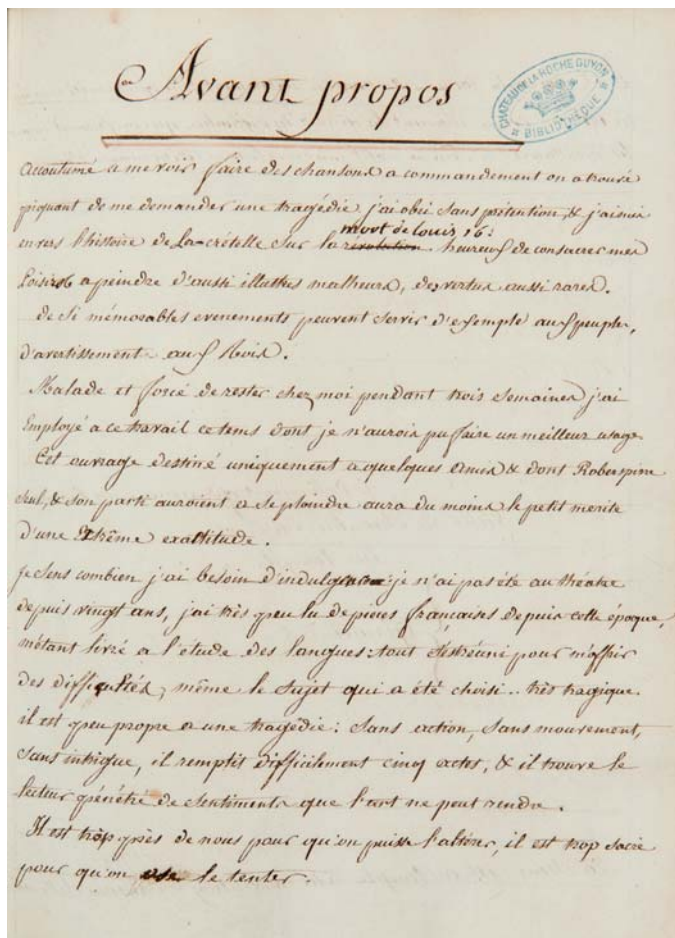 Avant propos
CHATEAU DE LA ROCHE GUYON
BIBLIOTHÈQUE
Accoutumé a me voir faire des chansons a commandement on a trouvé
piquant de me demander une tragédie j'ai obéi sans prétention, & j'ai mis
mort de Louis 16:
en vers l'histoire de La-crételle sur la révolution heureux de consacrer mes
Loisirs a peindre d'aussi illustres malheurs, des vertus aussi rares.
de si mémorables evenements peuvent servir d'exemple aux peuples,
d'avertissement aux Rois.
Malade et forcé de rester chez moi pendant trois semaines j'ai
Employé a ce travail ce tems dont je n'aurois pu faire un meilleur usage
Cet ouvrage destiné uniquement a quelques amis & dont Roberspierre
seul, & son parti auroient a se plaindre aura du moins le petit merite
d'une Extrême exactitude.
Je sens combien j'ai besoin d'indulgence: je n'ai pas été au théatre
depuis vingt ans, j'ai très peu lu de pieces françaises depuis cette époque,
m'étant livré a l'etude des langues: tout s'est réuni pour m'offrir
des difficultés, même le sujet qui a été choisi.. très tragique
il est peu propre a une tragédie: sans action, sans mouvement,
sans intrigue, il remplit difficilement cinq actes, & il trouve le
lecteur pénétré de sentiments que l'art ne peut rendre.
Il est trop près de nous pour qu'on puisse l'altérer, il est trop sacré
pour qu'on ose le tenter.